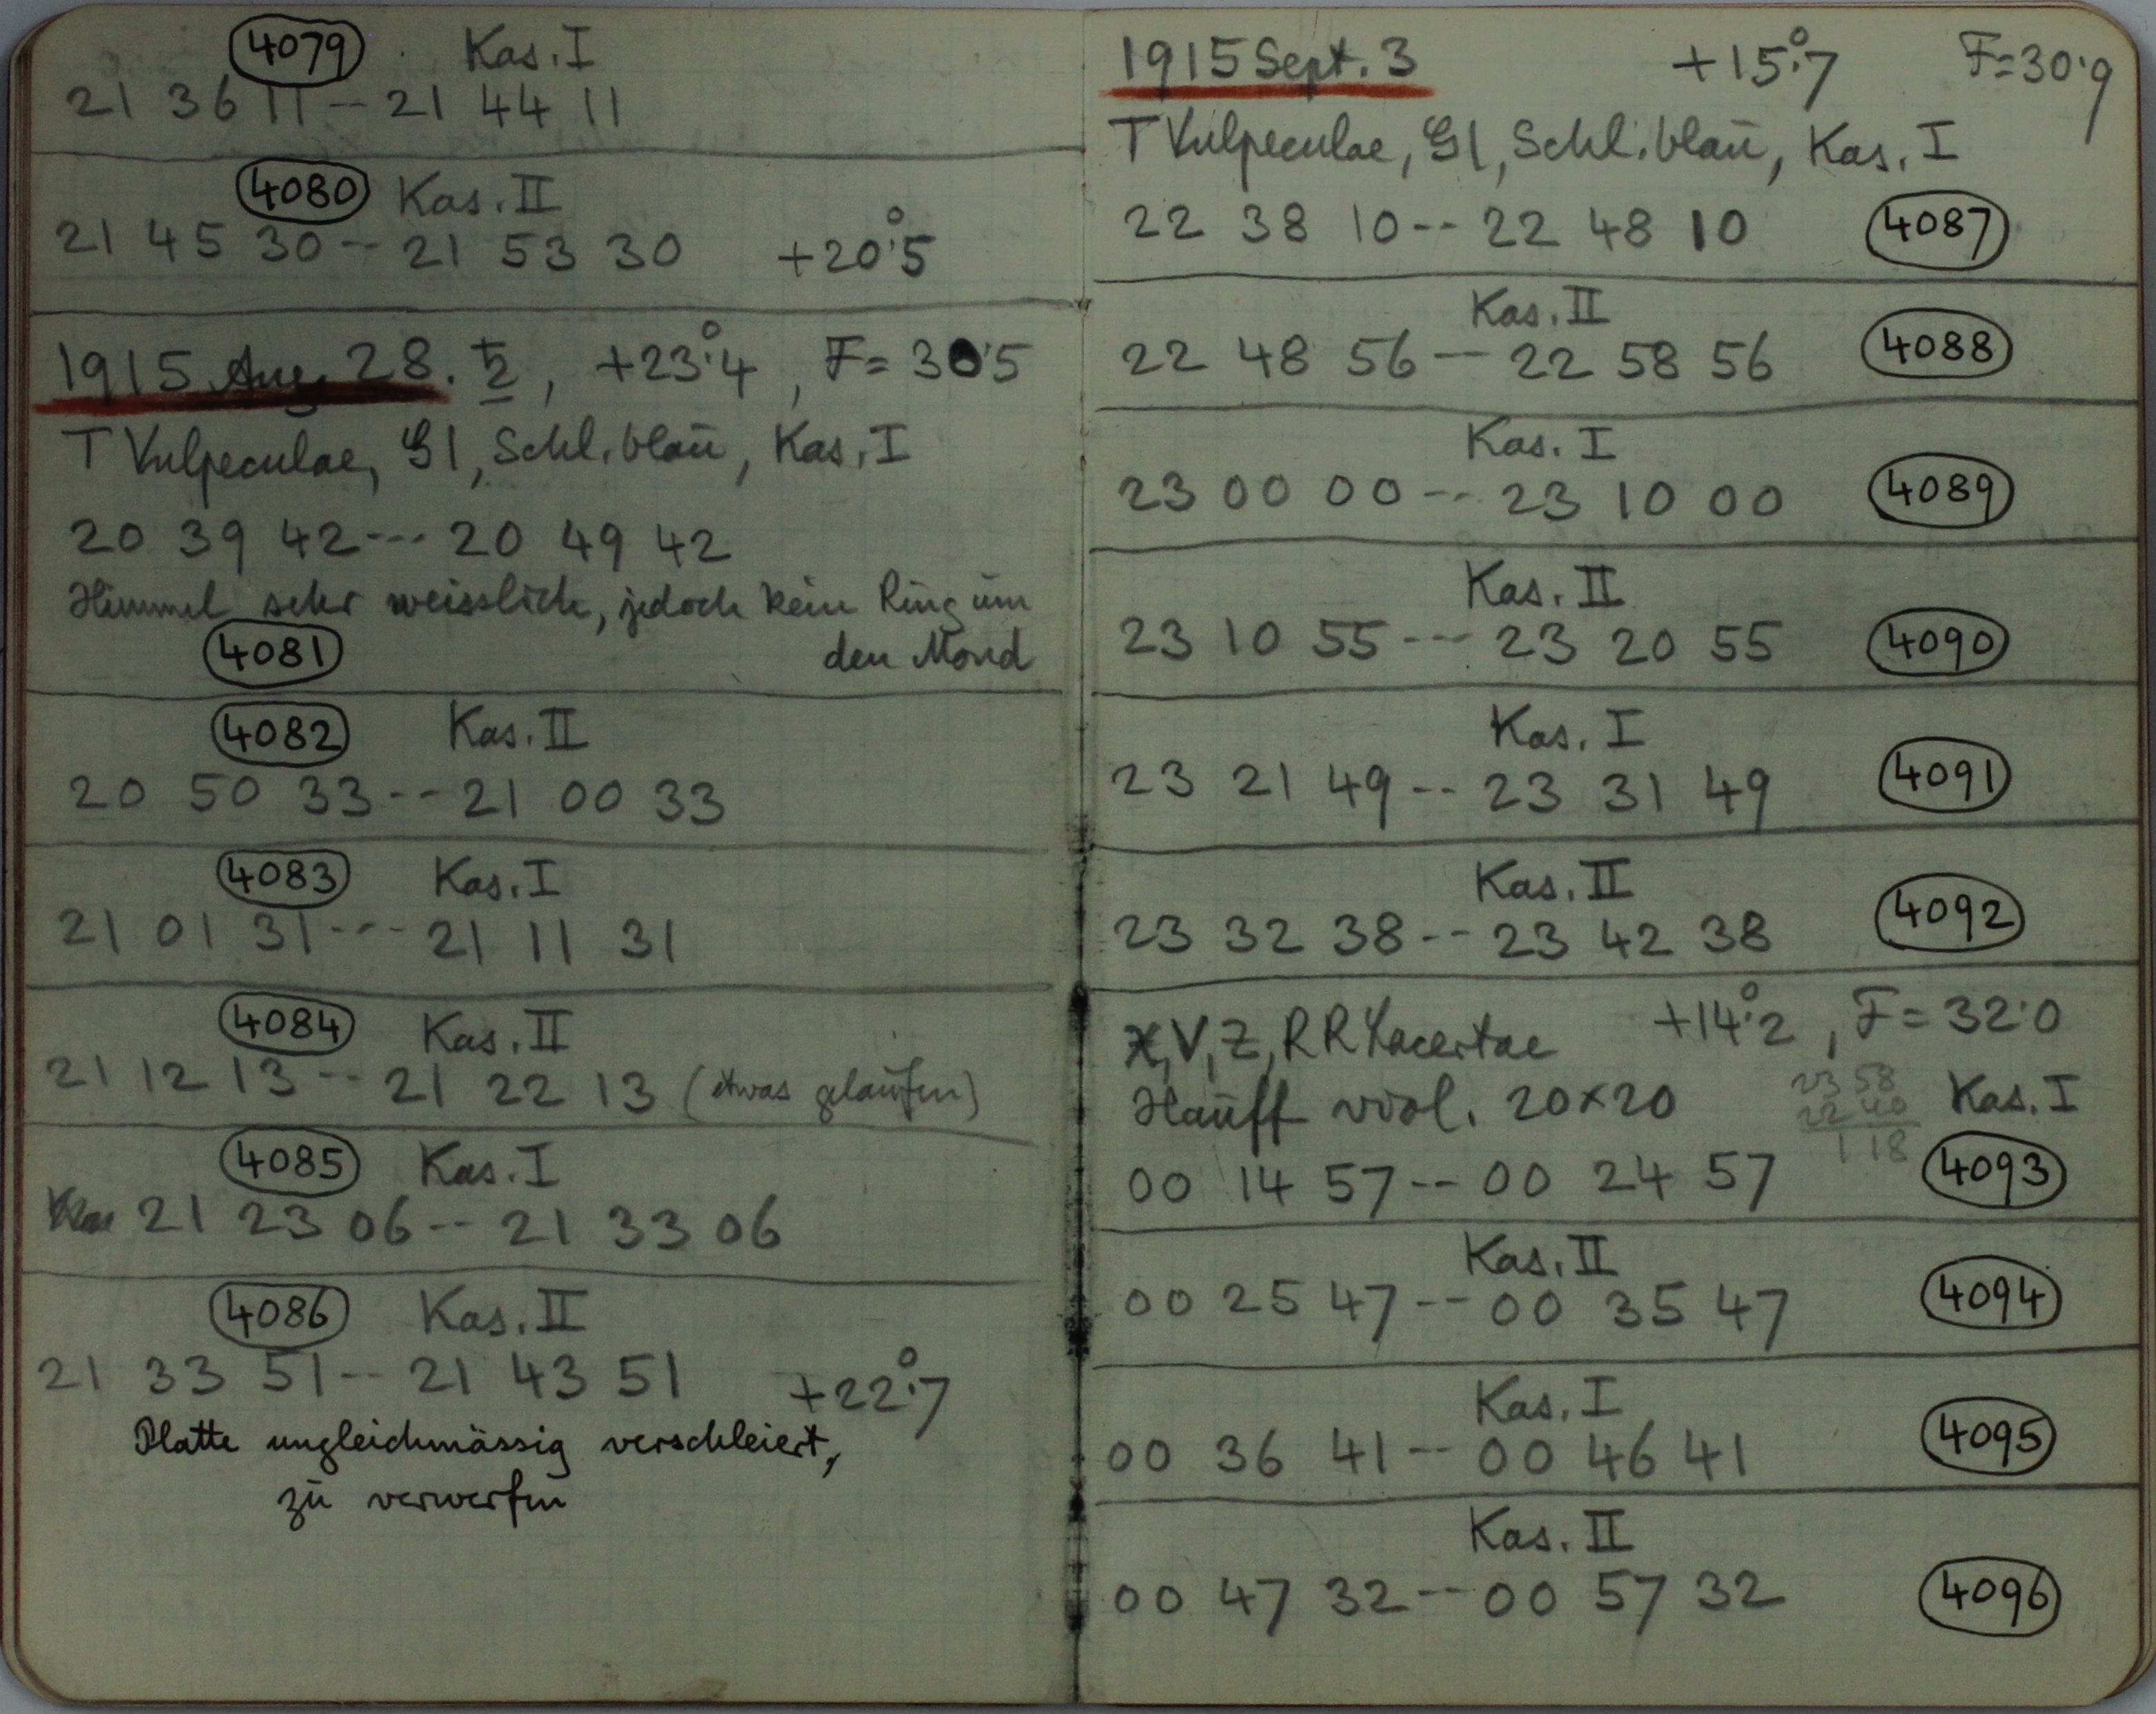 4079 Kas. I
21 36 11 -- 21 44 11
4080 Kas. II
21 45 30 -- 21 53 30 +20°.5
1915 Aug. 28. ♄, +23°.4, F = 30.5
T Vulpeculae, Gl, Schl. blaŭ, Kas. I
20 39 42 --- 20 49 42
Himmel sehr weisslich, jedoch kein Ring ŭm
den Mond
4081
4082 Kas. II
20 50 33 -- 21 00 33
4083 Kas. I
21 01 31 --- 21 11 31
4084 Kas. II
21 12 13 -- 21 22 13 (etwas gelaŭfen)
4085 Kas. I
21 23 06 -- 21 33 06
4086 Kas. II
21 33 51 -- 21 43 51 +22°.7
Platte ungleichmässig verschleiert,
zŭ verwerfen
1915 Sept. 3 +15°.7 F = 30.9
T Vulpeculae, Gl, Schl. blaŭ, Kas. I
22 38 10 -- 22 48 10 4087
Kas. II
22 48 56 -- 22 58 56 4088
Kas. I
23 00 00 -- 23 10 00 4089
Kas. II
23 10 55 --- 23 20 55 4090
Kas. I
23 21 49 -- 23 31 49 4091
Kas. II
23 32 38 -- 23 42 38 4092
X, V, Z, RR Lacertae +14°.2, F = 32.0
Haŭff viol. 20×20 Kas. I
23 58
22 40
1 18
00 14 57 -- 00 24 57 4093
Kas. II
00 25 47 -- 00 35 47 4094
Kas. I
00 36 41 -- 00 46 41 4095
Kas. II
00 47 32 -- 00 57 32 4096